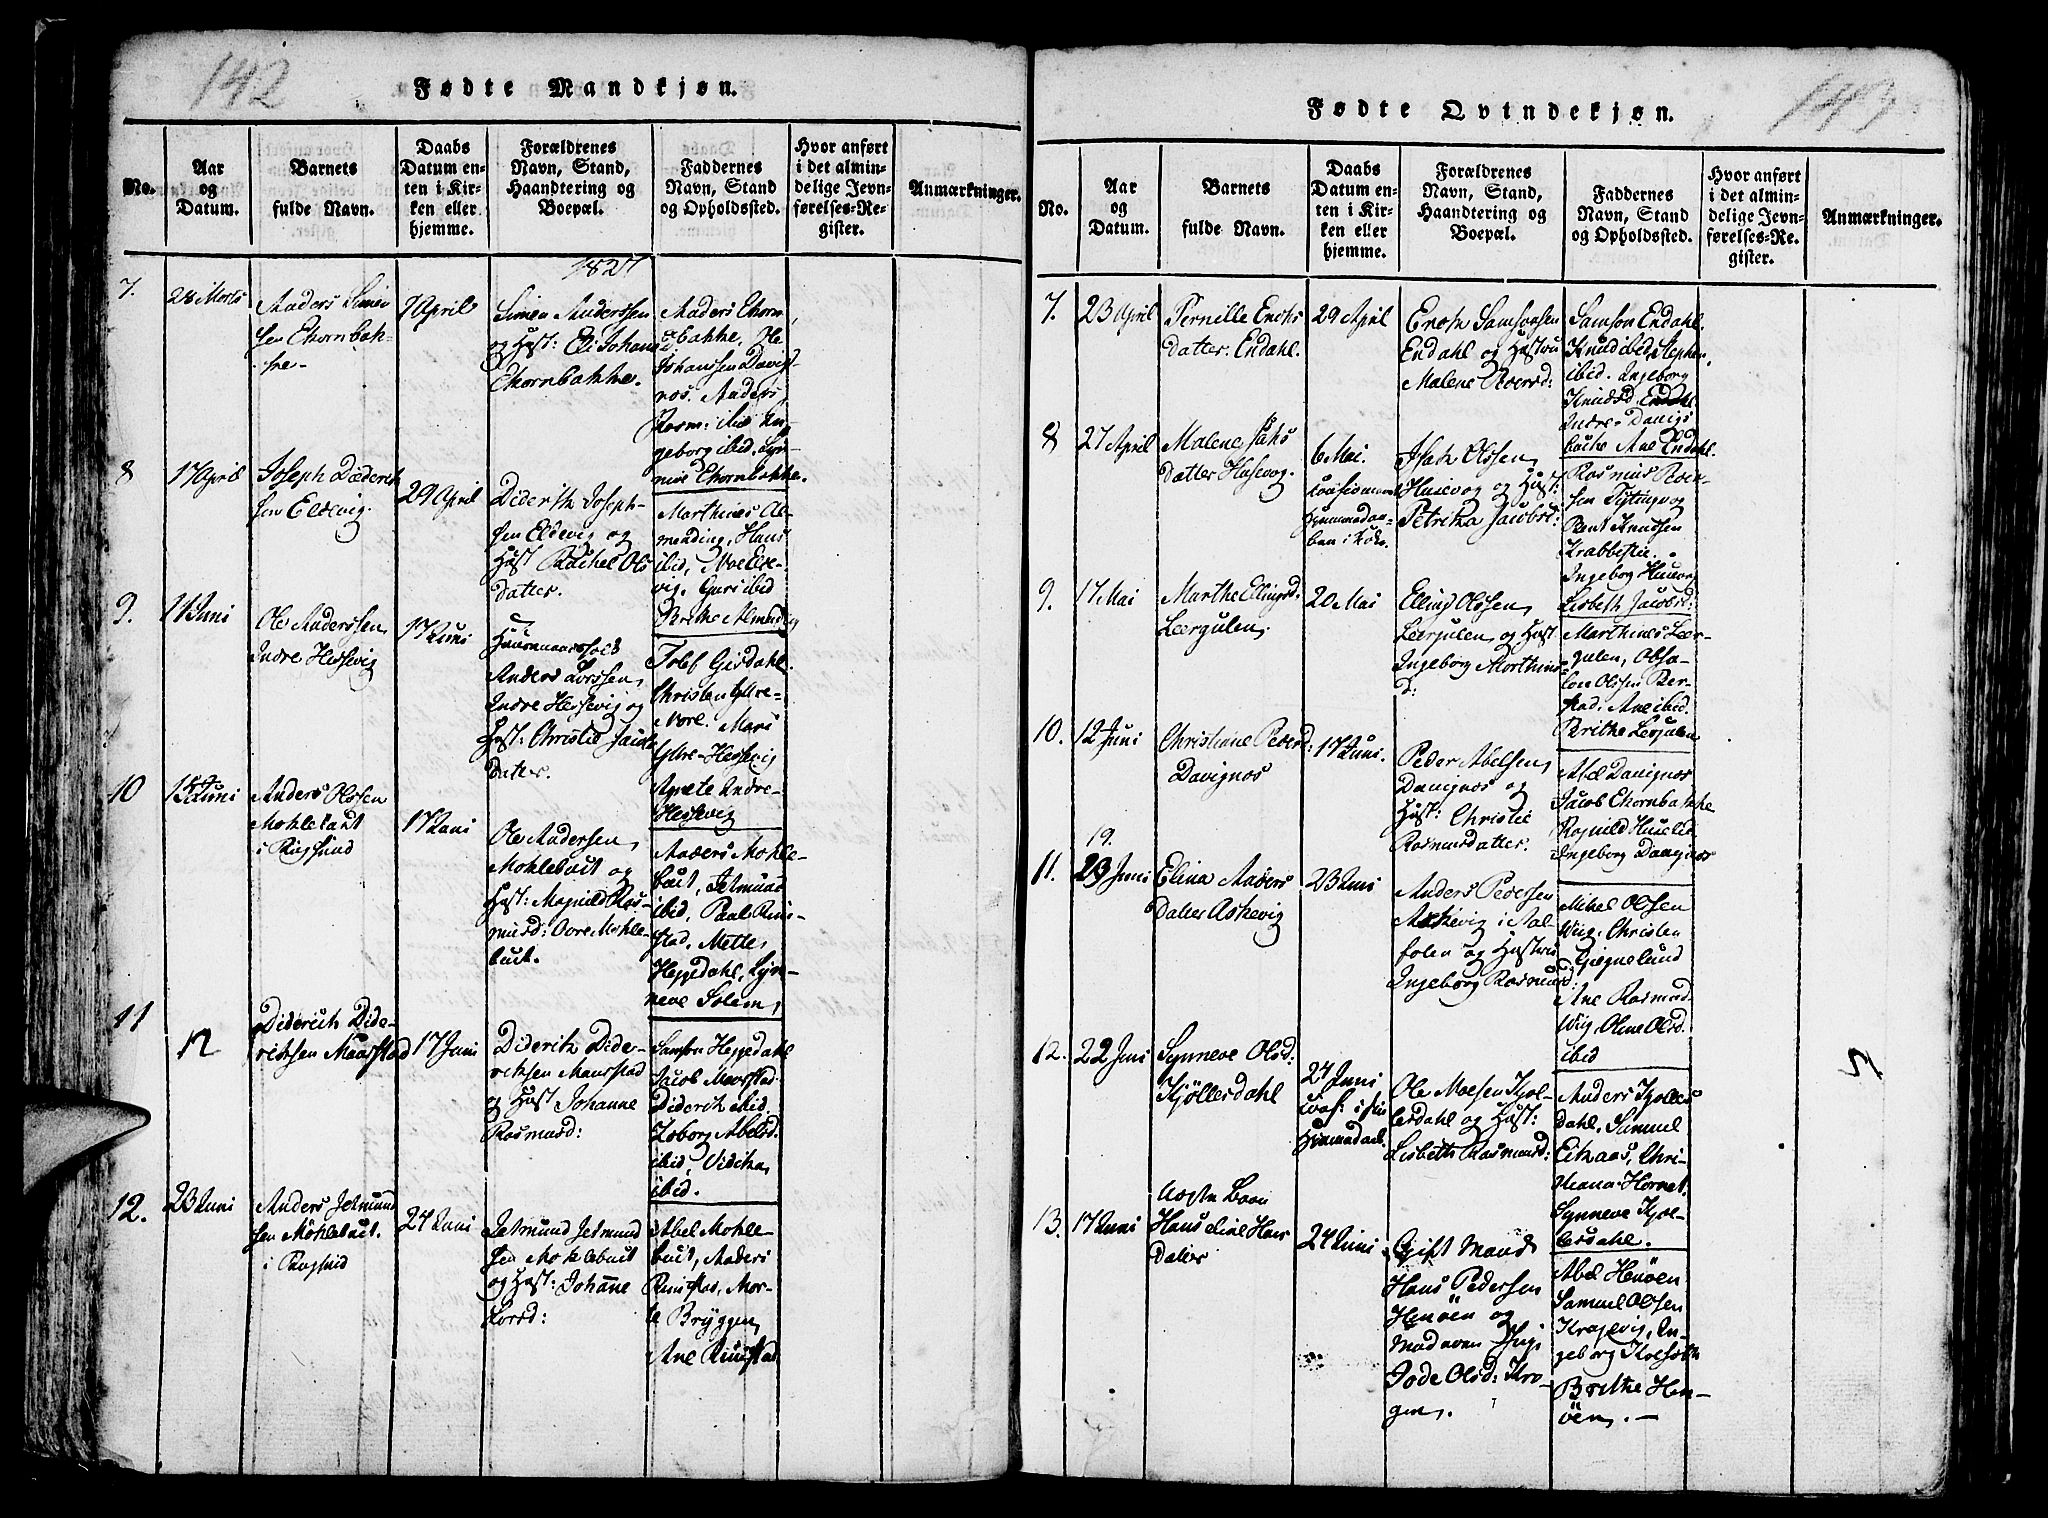 142
Fødte Mandkjøn.
No.
Aar
og
Datum.
Barnets
fulde Navn.
Daabs
Datum en-
ten i Kir-
ken eller
hjemme.
Forældrenes
Navn, Stand,
Haandtering og
Boepæl.
Faddernes
Navn, Stand
og Opholdssted.
Hvor anført
i det almin-
delige Jevn-
førelses-Re-
gister.
Anmærkninger.
1827
7.
28 Morts
Anders Simen
sen Ehornbak-
ke
1 April
Simen Anderssen
og Hust: Eli Johans
Ehornbakke.
Anders Ehorn
bakke, 
Johanssen Davig-
nos. Anders
ibid. In-
geborg ibid.
Ehornbakke.
8
17 April
Joseph Diderich
sen Eldevig.
29 April
Diderich Joseph-
sen Eldevig og
Hust Rachel Ols
datter.
Marthines Al-
mending, Hans
ibid, Moe Elde-
vig, Guri ibid
Brithe Almending
9.
11 Juni
Ole Anderssen
Indre Hessevig
17 Juni
Huusmandsfolk
Anders Larssen,
Indre Hessevig og
Hust: Christie Jacobs
datter.
Tolef Gisdahl
Christen Ytre-
Nore. Mari
Ytre-Hessevig
Agnete Indre-
Hessevig
10
Juni
Anders Olssen
Mohlebuit
i Rugsund
17 Juni
Ole Andersen,
Mohlebuit og
Hust: Magnild Ras-
musd: Mohle-
buit.
Anders Mohle-
buit, Jetmund
ibid, Paul Rim-
stad, Mette
Heggedahl, Syn-
neve Solem,
11
Diderich Dide-
richsen Maurstad
17 Juni
Diderich Dide-
richsen Maurstad
og Hust Johanne
Rasmusd:
Samson Heggedahl
Jacob Maurstad
Diderich ibid.
Abelsd:
ibid,
ibid.
12.
23 Juni
Anders Jetmund
sen Mohlebuit.
i Rugsund
24 Juni
Jetmund Jetmund
sen Mohlebuit
og Hust: Johanne
Larsd:
Abel Mohle-
buit, Anders
Rimstad, Mor-
te Bryggen
Ane Rimstad
143
Fødte Qvindekjøn.
No.
Aar
og
Datum.
Barnets
fulde Navn.
Daabs
Datum en-
ten i Kir-
ken eller
hjemme.
Forældrenes
Navn, Stand,
Haandtering og
Boepæl.
Faddernes
Navn, Stand
og Opholdssted.
Hvor anført
i det almin-
delige Jevn-
førelses-Re-
gister.
Anmærkninger.
7.
23 April
Pernille Enoks
datter. Endahl.
29 April
Enok Samsonsen
Endahl og Hustru
Malene Roersd:
Samson Endahl.
Knud ibid, Stephen
ibid. Ingeborg
Knudsd. Endahl
Indre-Davigs
Ane Endahl.
8
27 April
Malene Isaks
datter Husevog.
6 Mai.
Isak Olssen
Husevog og Hust:
Petrika Jacobsd:
Rasmus Roer-
sen Tytingvog
Bent Knudsen
Krabbestie.
Ingeborg Husevog
Lisbeth Jacobsd:
9.
17 Mai
Marthe Ellingsd.
Leergulen.
20 Mai
Elling Olssen,
Leergulen, og Hust
Ingeborg Morthins-
d:
Marthines Leer-
gulen, Absa-
lon Olssen Ber-
stad, Ane ibid.
Brithe Leergulen
10.
12 Juni
Christiane Pedersd:
Davignos
17 Juni.
Peder Abelsen,
Davignos og
Hust: Christie
Rasmusdatter.
Abel Davignos
Jacob Ehornbakke
Ragnild
Ingeborg Davignos
11.
19.
23 Juni
Elina Anders
datter Askevig
23 Juni
Anders Pedersen
Askevig i Aal-
foten og Hustru
Ingeborg Rasmusd:
Mikel Olssen
Wiig, Christen
Gjegnelund
Ane Rasmusd.
Wiig, Oline Olsd.
ibid
12.
22 Juni
Synneve Olsd:
Kjøllesdahl
24 Juni
Ole Moesen Kjøl-
lesdahl og Hust:
Lisbeth Rasmusd:
Anders Kjølles
dahl, Samuel
Eikaas, Chri-
stiana Hornet.
Synneve Kjøl-
lesdahl.
13.
17 Juni
Uægte Barn
Hans eline Hans
datter
24 Juni
Gift Mand
Hans Pedersen
Henøen og
Madaven Pige
Jode Olsd: Kro-
gen.
Abel Henøen
Samuel Olssen
Krogevig, In-
geborg Kolset
Brithe Hen-
øen. —